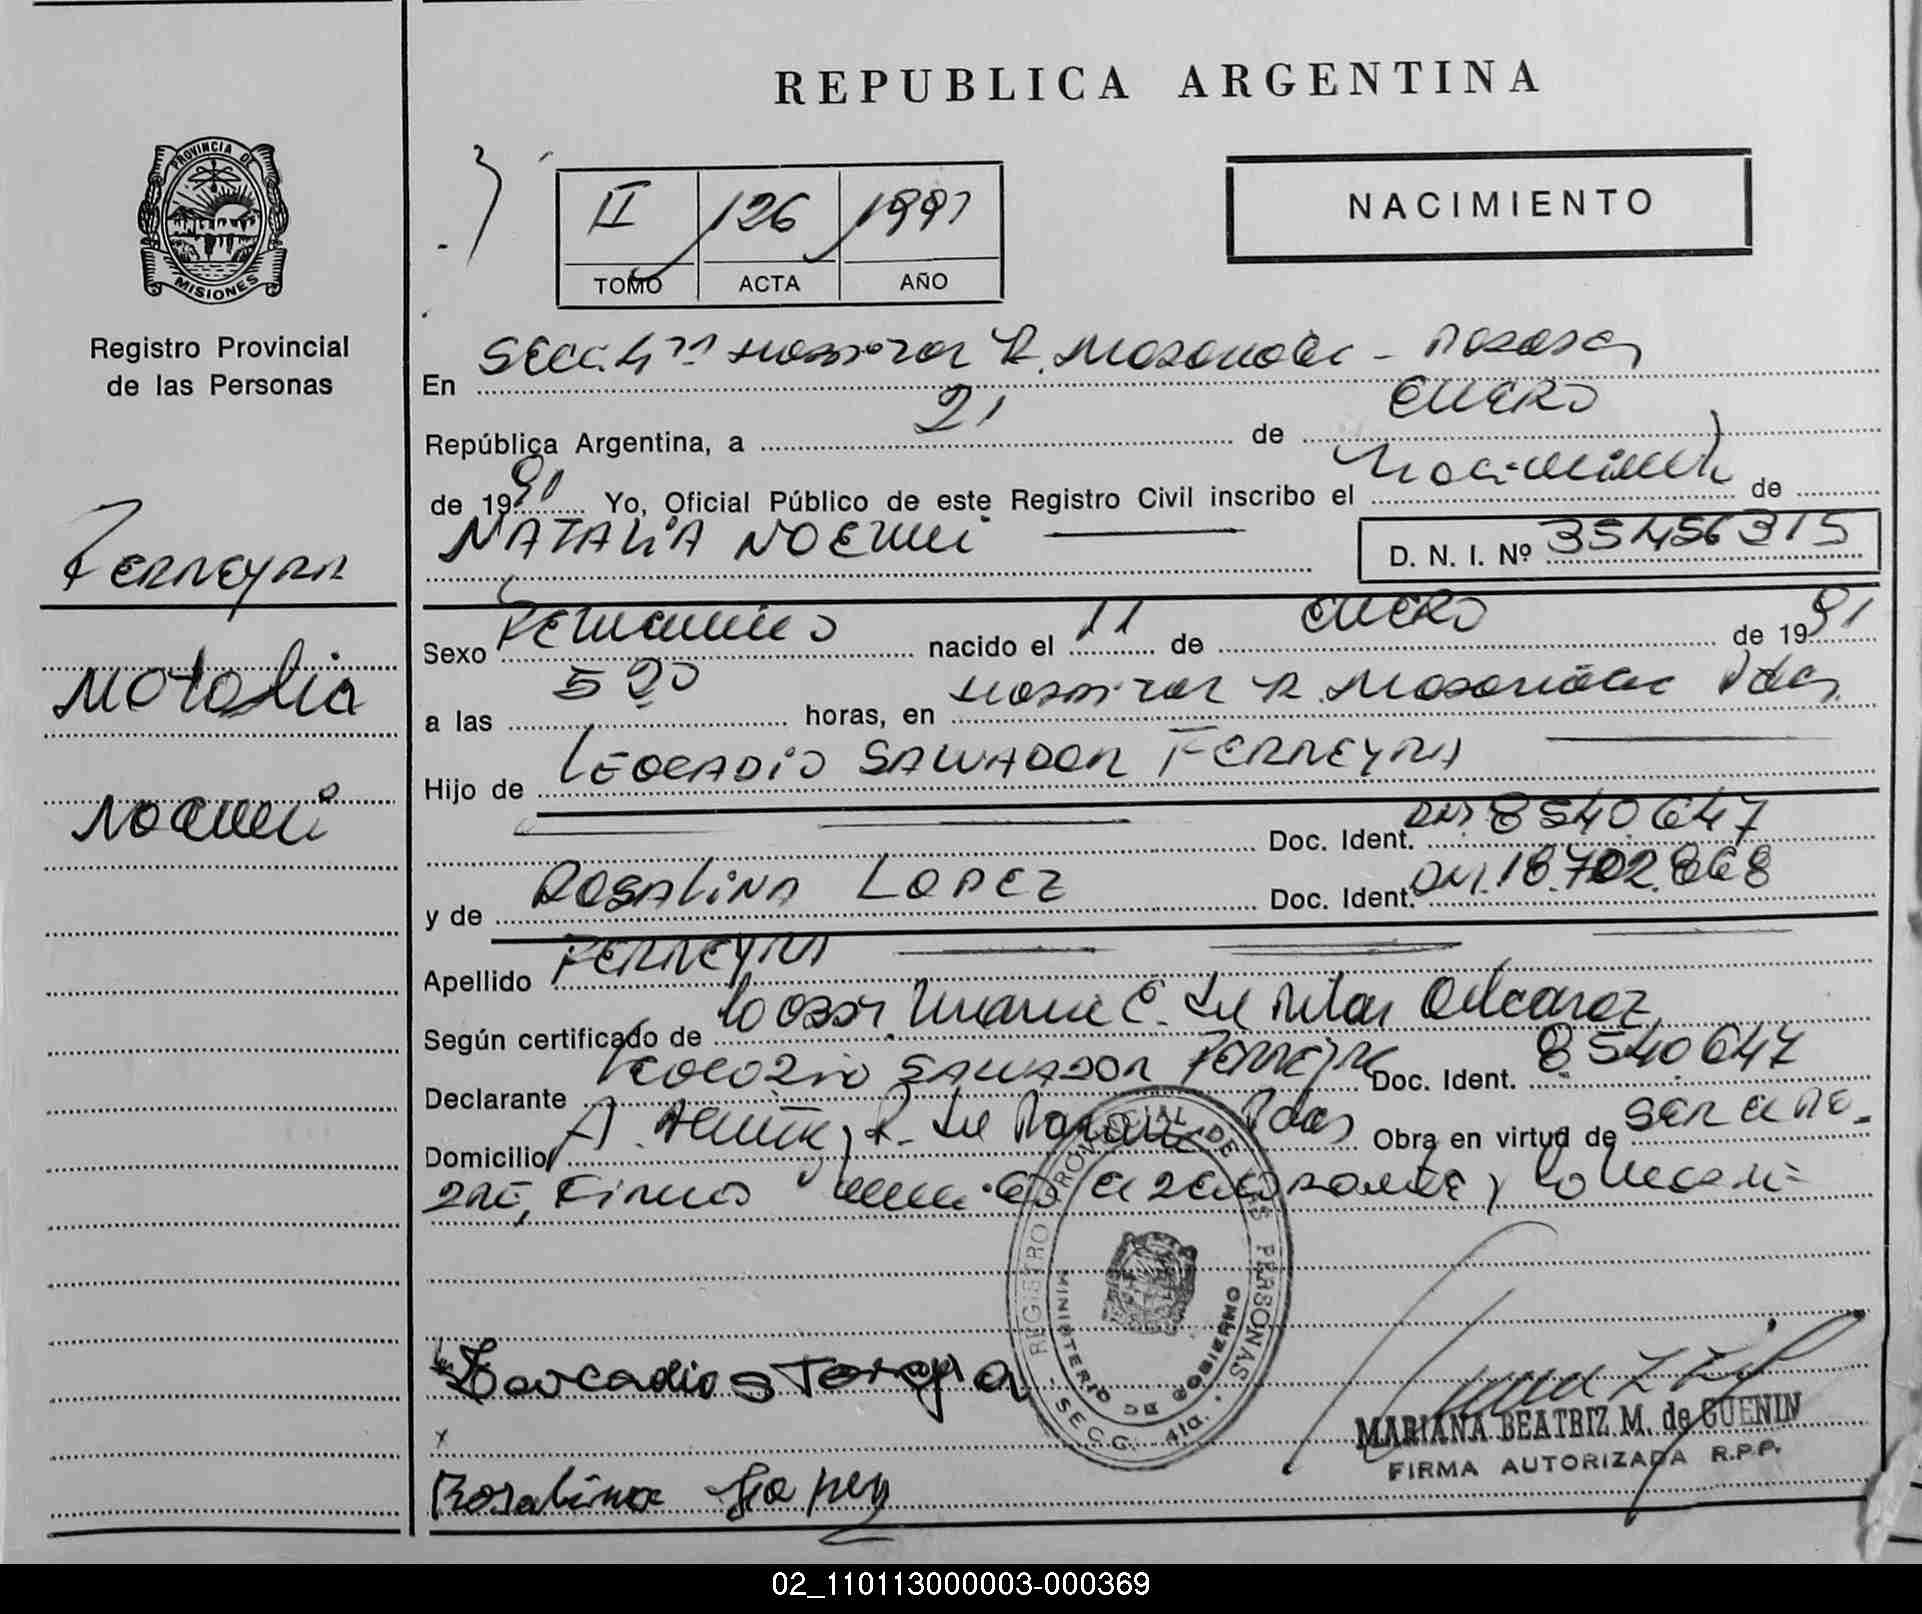 REPUBLICA ARGENTINA
PROVINCIA DE
MISIONES
Registro Provincial
de las Personas
II 126 1991
TOMO ACTA AÑO
NACIMIENTO
En Secc. 4ta Hospital R. Madariaga - Posadas
República Argentina, a 21 de ENERO
de 1991 Yo, Oficial Público de este Registro Civil inscribo el Nacimiento de
NATALIA NOEMI D. N. I. Nº 35456315
Ferreyra
Natalia
Noemi
Sexo Femenino nacido el 11 de ENERO de 1991
a las 5 20 horas, en Hospital R. Madariaga Pdas
Hijo de LEOCADIO SALVADOR FERREYRA
Doc. Ident. DNI 8540647
y de ROSALINA LOPEZ Doc. Ident. DNI. 18.702.868
Apellido FERREYRA
Según certificado de la Obst. Maria E. del Pilar Alcaraz
Declarante Leocadio SALVADOR FERREYRA Doc. Ident. 8540647
Domicilio A. R. del Pdas Obra en virtud de
Firma
REGISTRO PROVINCIAL DE LAS PERSONAS
MINISTERIO DE GOBIERNO
SECC. 4ta.
Leocadio S Fereyra
Rosalina Lopez
MARIANA BEATRIZ M. de GUENIN
FIRMA AUTORIZADA R.P.P.
02_110113000003-000369